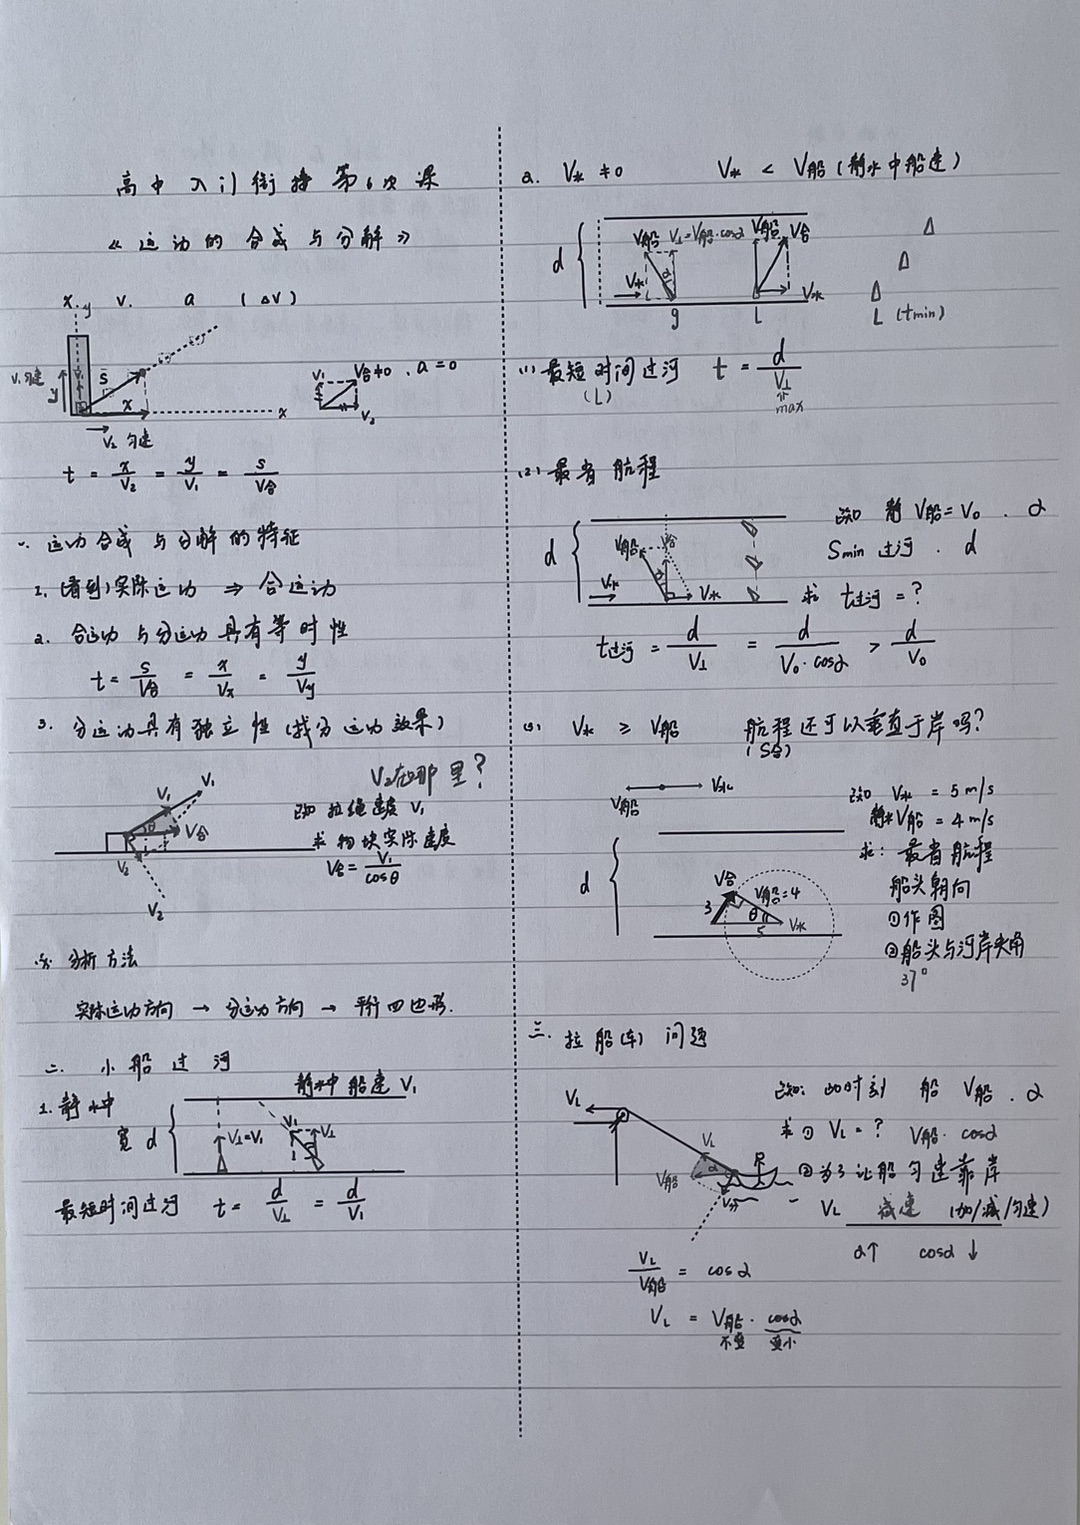 高中入门衔接第6次课
《运动的合成与分解》
x. y v. a (ΔV)
V₁匀速 y S x x
V₂ 匀速
V₁ V合≠0 . a=0
V₂
t = x/V₂ = y/V₁ = S/V合
一. 运动合成与分解的特征
1. (看到)实际运动 ⇒ 合运动
2. 合运动与分运动具有等时性
t = S/V合 = x/Vx = y/Vy
3. 分运动具有独立性 (找分运动效果)
V₂在哪里?
已知 拉绳速度 V₁
求 物块实际速度
V合 = V₁/cosθ
V₁ V₁ θ V合 V₂ V₂
分析方法
实际运动方向 → 分运动方向 → 平行四边形.
二. 小船过河
静水中船速 V₁
1. 静水中
宽 d
V⊥=V₁ V₁ V⊥
最短时间过河 t = d/V⊥ = d/V₁
2. V水≠0 V水 < V船(静水中船速)
V船 V⊥=V船·cosα V船 V合
d V水 α V水
L (tmin)
(1) 最短时间过河 t = d/V⊥
(L) max
(2) 最省航程
d V船 V合 V水 V水
已知 静V船=V₀ . α
Smin 过河 . d
求 t过河 = ?
t过河 = d/V⊥ = d/V₀·cosα > d/V₀
(3) V水 ≥ V船 航程还可以垂直于岸吗?
(S合)
V船 V水
已知 V水 = 5m/s
静水V船 = 4m/s
求: 最省航程
船头朝向
①作图
②船头与河岸夹角
37°
d V合 V船=4 3 θ 5 V水
三. 拉船(车)问题
已知: 此时刻 船 V船 . α
求① V_L = ? V船·cosα
②为了让船匀速靠岸
V_L 减速 (加/减/匀速)
α↑ cosα↓
V_L V_L α V船 V分
V_L/V船 = cosα
V_L = V船 · cosα
不变 变小